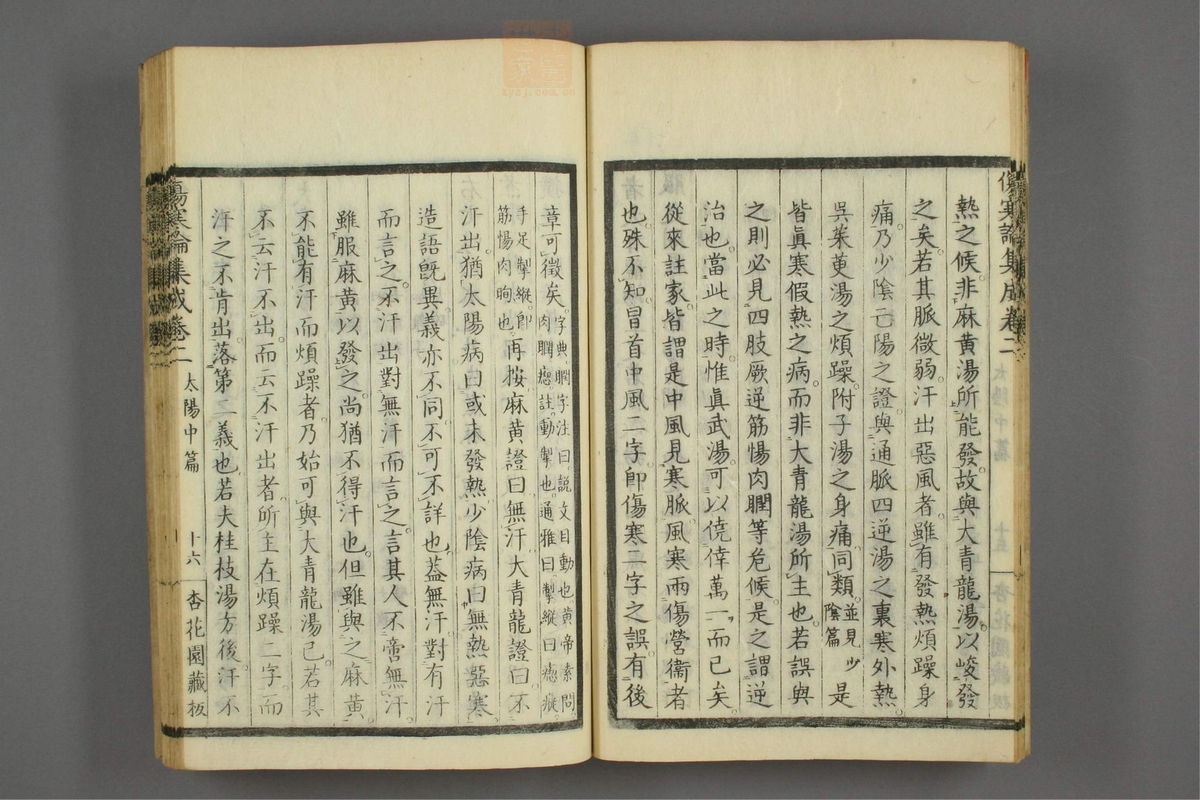 熱之候。非麻黃湯所能發。故與大青龍湯。以峻發
之矣。若其脈微弱。汗出惡風者。雖有發熱煩躁身
痛。乃少陰亡陽之證。與通脈四逆湯之裏寒外熱。
吳茱萸湯之煩躁。附子湯之身痛同類。並見少陰篇 是
皆眞寒假熱之病。而非大青龍湯所主也。若誤與
之。則必見四肢厥逆筋惕肉瞤等危候。是之謂逆
治也。當此之時。惟眞武湯。可以僥倖萬一而已矣
從來註家。皆謂是中風見寒脈。風寒兩傷營衞者
也。殊不知冒首中風二字。卽傷寒二字之誤。有後
章可徵矣。字典瞤字注曰。說文目動也。黃帝素問肉瞤瘛註。動掣也。通雅曰。掣縱曰瘛瘲。
手足掣縱。卽筋惕肉眴也。再按麻黃證曰無汗。大青龍證曰不
汗出。猶太陽病曰或未發熱。少陰病曰無熱惡寒。
造語旣異。義亦不同。不可不詳也。蓋無汗對有汗
而言之。不汗出對無汗而言之。言其人不啻無汗
雖服麻黃以發之。尚猶不得汗也。但雖與之麻黃
不能有汗而煩躁者。乃始可與大青龍湯已。若其
不云汗不出。而云不汗出者。所主在煩躁二字。而
汗之不肯出。落第二義也。若夫桂枝湯方後。汗不
傷寒論集成卷二
太陽中篇
十六
杏花園藏板
傷寒論集成卷二